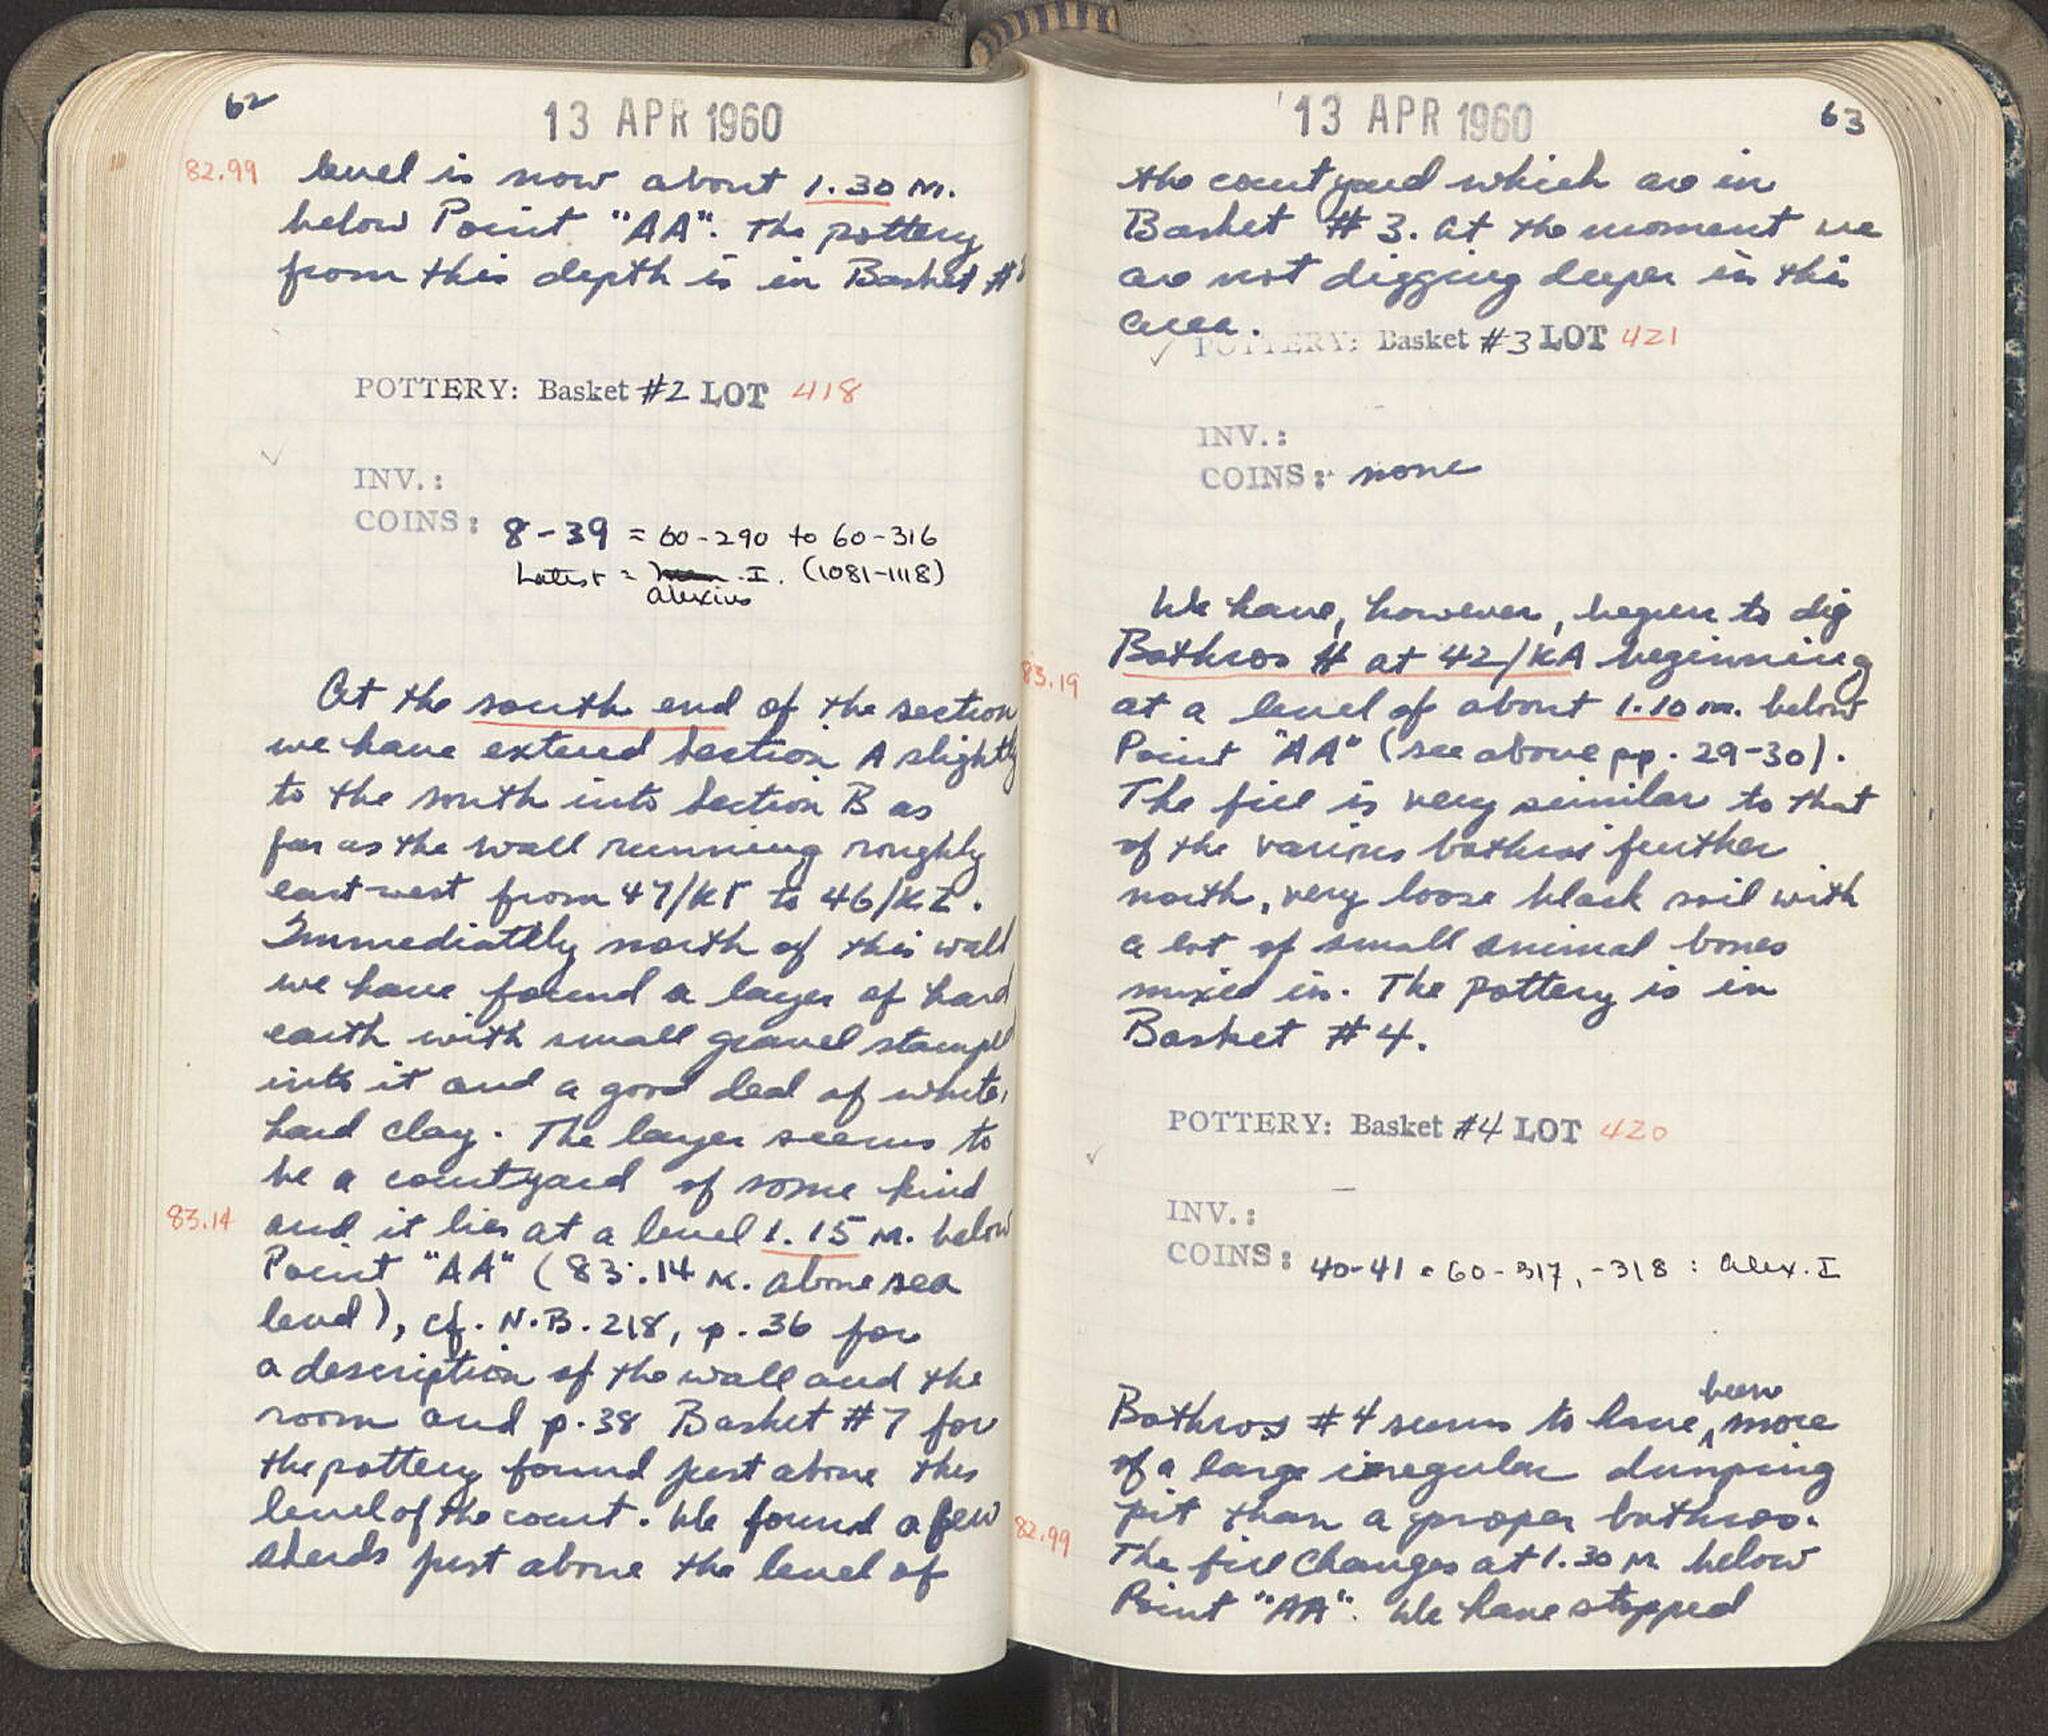 62
13 APR 1960
82.99 level is now about 1.30 M.
below Point "AA". The pottery
from this depth is in Basket #
POTTERY: Basket #2 LOT 418
INV.:
COINS: 8-39 = 60-290 to 60-316
Latest = I. (1081-1118)
Alexius
At the south end of the section
we have extened Section A slightly
to the south into Section B as
far as the wall running roughly
east-west from 47/KΓ to 46/KZ.
Immediatlly north of this wall
we have found a layer of hard
earth with small gravel stamped
into it and a good deal of white,
hard clay. The layer seems to
be a courtyard of some kind
83.14 and it lies at a level 1.15 M. below
Point "AA" (83.14 M. above sea
level), cf. N.B. 218, p. 36 for
a description of the wall and the
room and p. 38 Basket #7 for
the pottery found just above this
level of the court. We found a few
sherds just above the level of
13 APR 1960
63
the courtyard which are in
Basket #3. At the moment we
are not digging deeper in this
area.
POTTERY: Basket #3 LOT 421
INV.:
COINS: none
We have, however, begun to dig
Bothros # at 42/KA beginning
83.19 at a level of about 1.10 m. below
Point "AA" (see above pp. 29-30).
The fill is very similar to that
of the various bothroi further
north, very loose black soil with
a lot of small animal bones
mixed in. The pottery is in
Basket #4.
POTTERY: Basket #4 LOT 420
INV.:
COINS: 40-41 = 60-317, -318 : Alex. I
Bothros #4 seems to have been more
of a large irregular dumping
pit than a proper bothros.
82.99 The fill changes at 1.30 M below
Point "AA". We have stopped